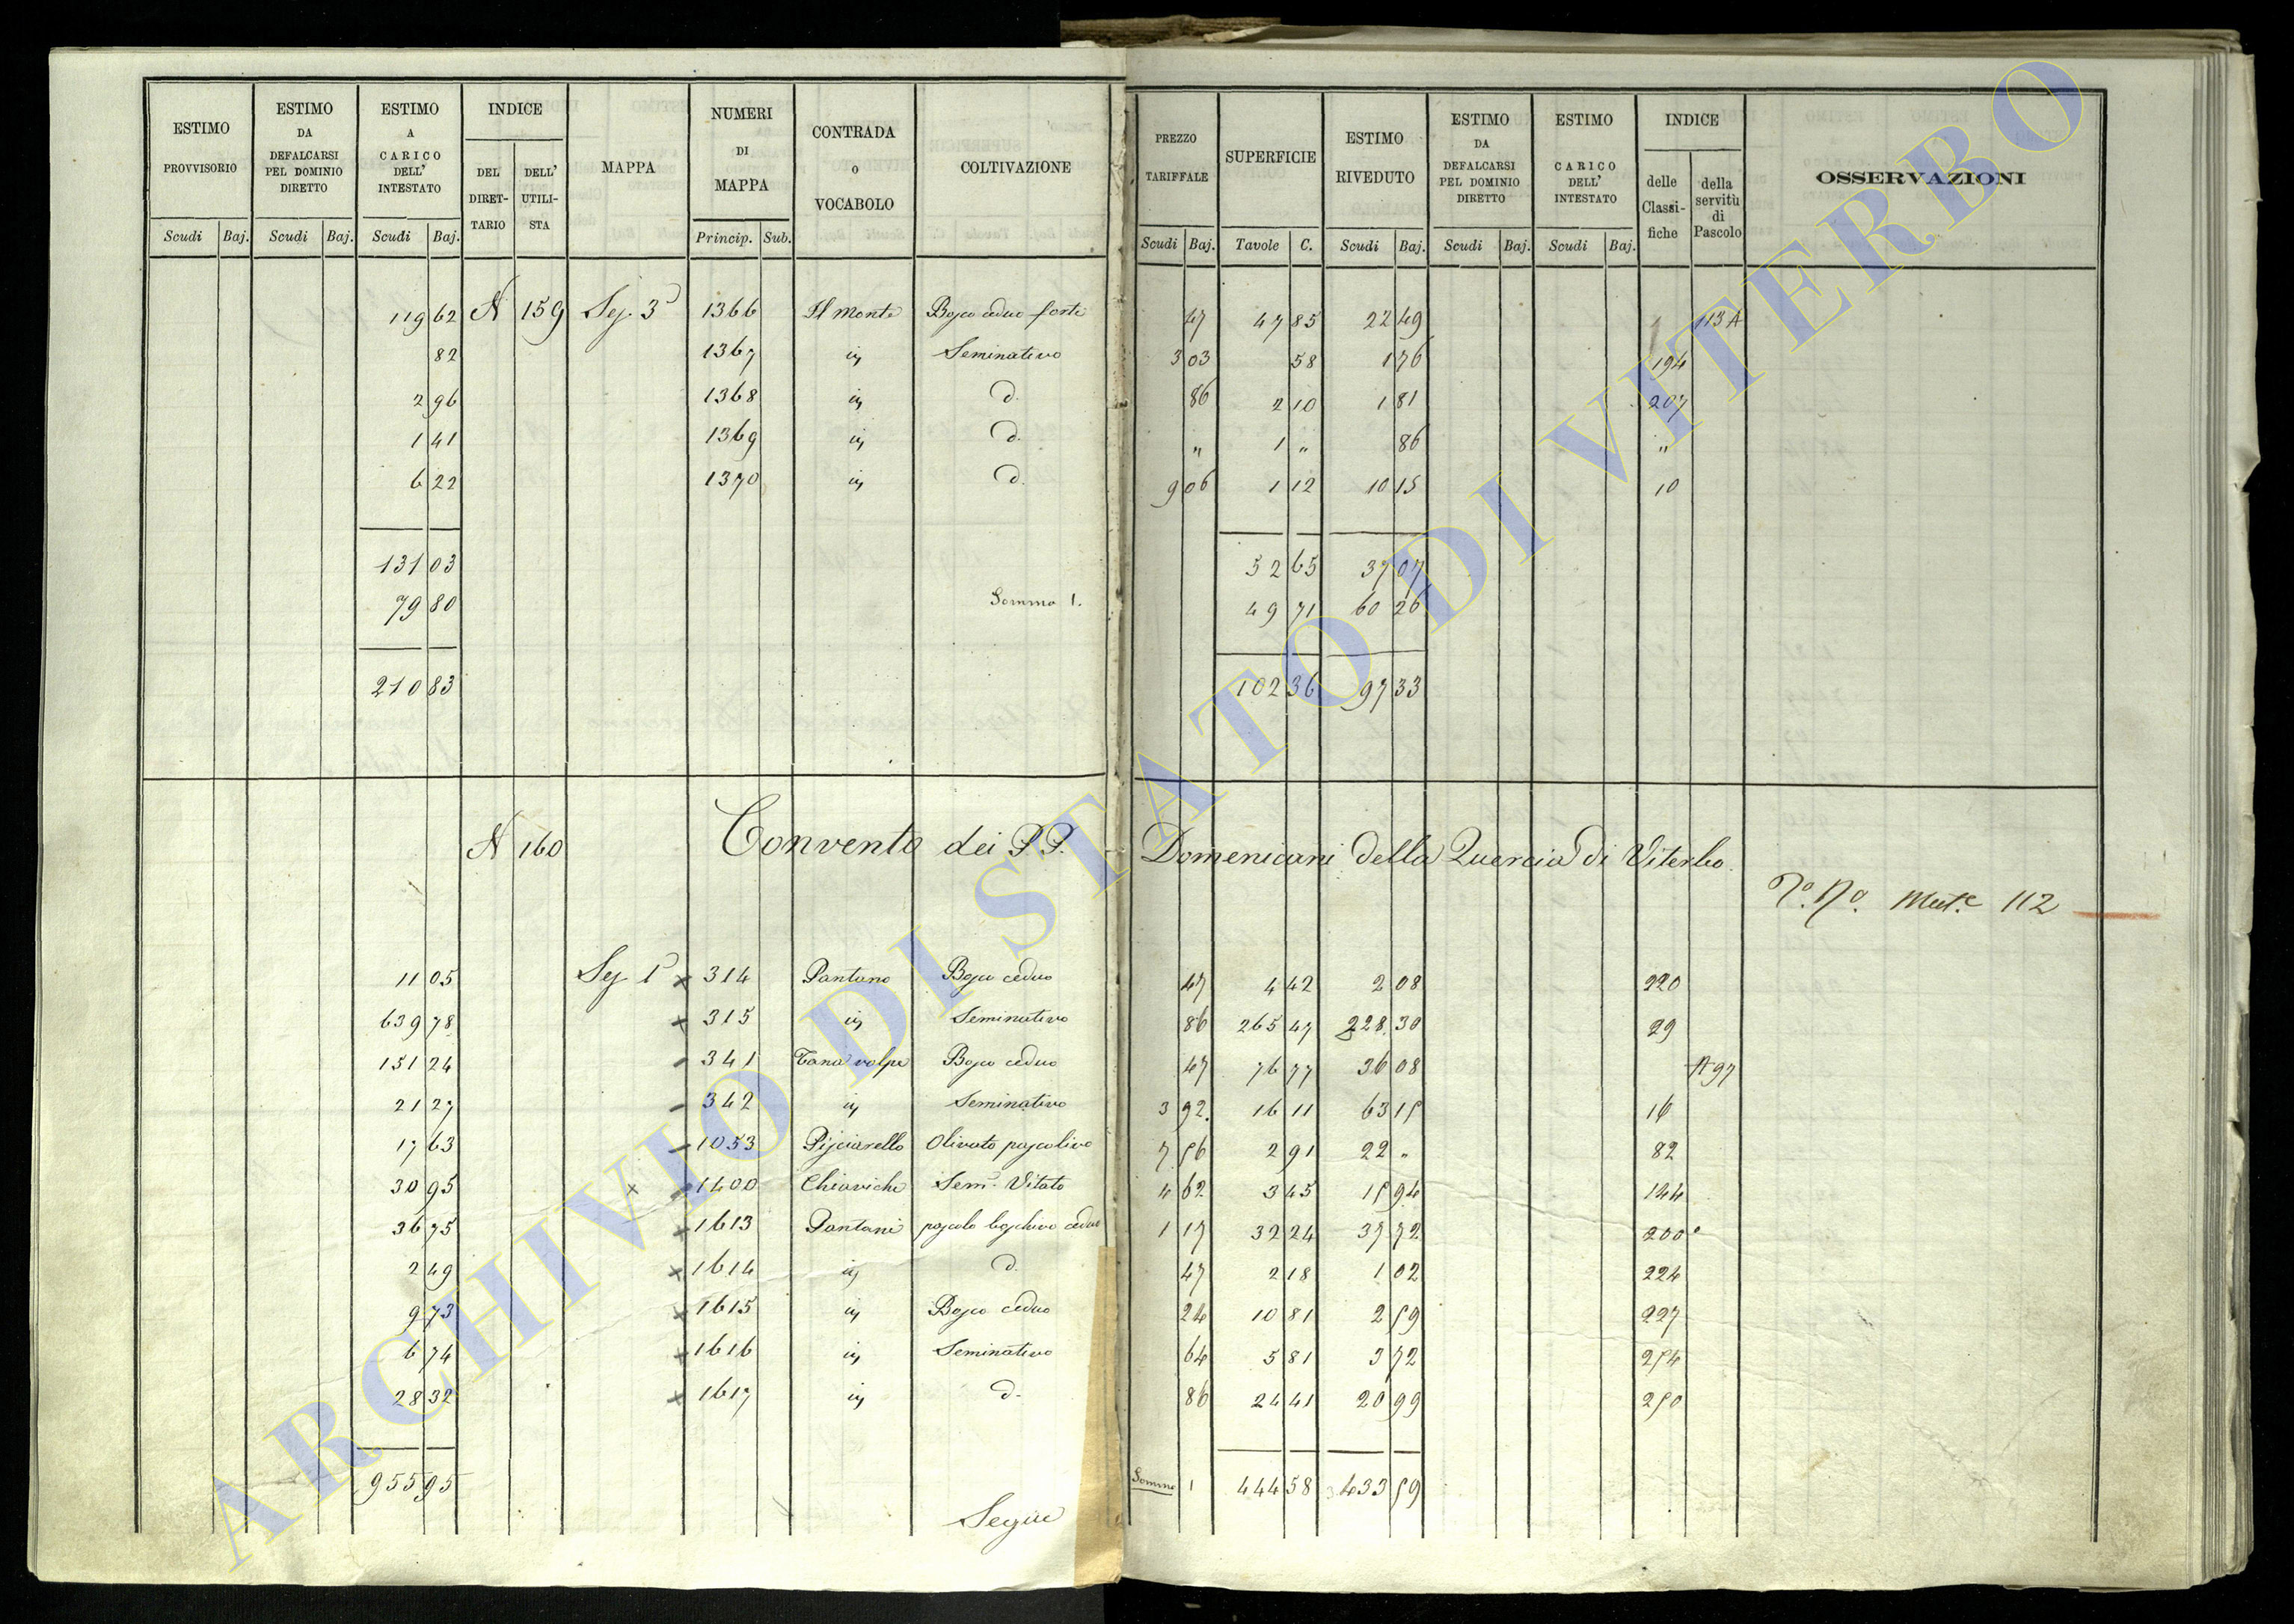 ESTIMO PROVVISORIO | ESTIMO DA DEFALCARSI PEL DOMINIO DIRETTO | ESTIMO A CARICO DELL' INTESTATO | INDICE DEL DIRET-TARIO | DELL' UTILI-STA | MAPPA | NUMERI DI MAPPA | CONTRADA o VOCABOLO | COLTIVAZIONE | PREZZO TARIFFALE | SUPERFICIE | ESTIMO RIVEDUTO | ESTIMO DA DEFALCARSI PEL DOMINIO DIRETTO | ESTIMO CARICO DELL' INTESTATO | INDICE delle Classi-fiche | della servitù di Pascolo | OSSERVAZIONI
Scudi Baj. | Scudi Baj. | Scudi Baj. | Princip. Sub. | Scudi Baj. | Tavole C. | Scudi Baj. | Scudi Baj. | Scudi Baj.
119 62 N 159 Sez. 3ª 1366 Il Monte Bosco ceduo forte 47 47 85 22 49 113 A
82 1367 iv Seminativo 3 03 58 1 76 194
2 96 1368 iv d. 86 2 10 1 81 207
1 41 1369 iv d. " 1 " 86 "
6 22 1370 iv d. 9 06 1 12 10 15 10
131 03 52 65 37 07
79 80 Somma 1. 49 71 60 26
210 83 102 36 97 33
N 160 Convento dei P.P. Domenicani della Quercia di Viterbo.
Mut.e 112
11 05 Sez. 1ª x 314 Pantano Bosco ceduo 47 4 42 2 08 220
639 78 x 315 iv Seminativo 86 265 47 228 30 29
151 24 - 341 Tana volpe Bosco ceduo 47 76 77 36 08 A 97
21 27 - 342 iv Seminativo 3 92 16 11 63 15 16
17 63 - 1053 Pisciarello Olivato pascolivo 7 56 2 91 22 " 82
30 95 x 1400 Chiaviche Sem. Vitato 4 62 3 45 15 94 144
36 75 x 1613 Pantani pascolo boschivo ceduo 1 17 32 24 37 72 200
2 49 x 1614 iv d. 47 2 18 1 02 224
9 73 x 1615 iv Bosco ceduo 24 10 81 2 59 227
6 74 x 1616 iv Seminativo 64 5 81 3 72 254
28 32 x 1617 iv d. 86 24 41 20 99 250
955 95 Somma 1 444 58 433 59
Segue
ARCHIVIO DI STATO DI VITERBO